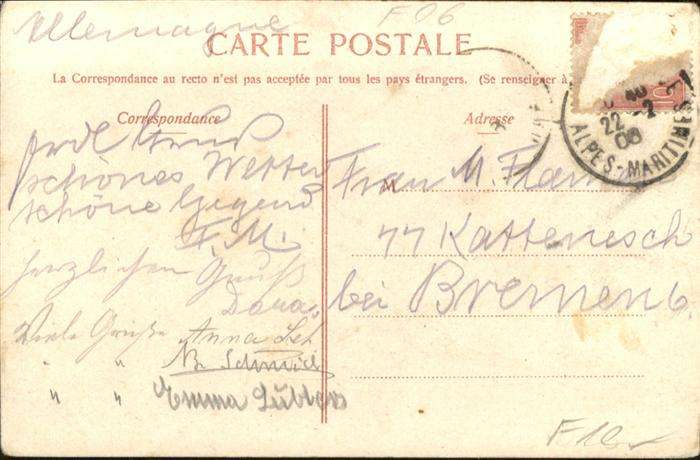 Allemagne
F06
CARTE POSTALE
La Correspondance au recto n'est pas acceptée par tous les pays étrangers. (Se renseigner à
Correspondance
Adresse
22 - 2
06
ALPES-MARITIMES
Gruß
schönes Wetter
schöne Gegend
F. M.
herzlichen Gruß
Dora
Viele Grüße Anna
" " Schmidt
" " Emma Lübben
Frau M.
77 Kattenesch
bei Bremen